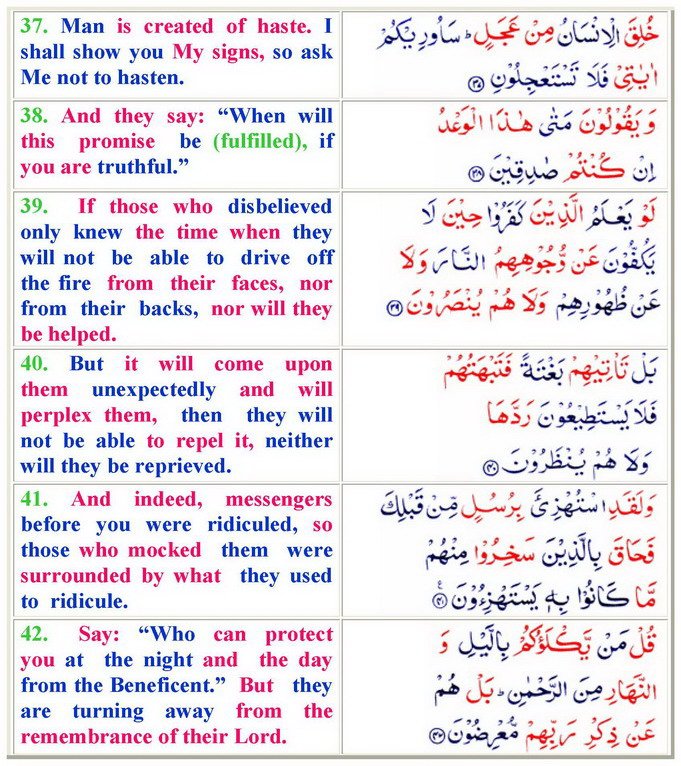 37. Man is created of haste. I
shall show you My signs, so ask
Me not to hasten.
خُلِقَ الْاِنْسَانُ مِنْ عَجَلٍ ؕ سَاُورِيْكُمْ
اٰيٰتِيْ فَلَا تَسْتَعْجِلُوْنِ ﴿۳۷﴾
38. And they say: “When will
this promise be (fulfilled), if
you are truthful.”
وَ يَقُوْلُوْنَ مَتٰى هٰذَا الْوَعْدُ
اِنْ كُنْتُمْ صٰدِقِيْنَ ﴿۳۸﴾
39. If those who disbelieved
only knew the time when they
will not be able to drive off
the fire from their faces, nor
from their backs, nor will they
be helped.
لَوْ يَعْلَمُ الَّذِيْنَ كَفَرُوْا حِيْنَ لَا
يَكُفُّوْنَ عَنْ وُّجُوْهِهِمُ النَّارَ وَلَا
عَنْ ظُهُوْرِهِمْ وَلَا هُمْ يُنْصَرُوْنَ ﴿۳۹﴾
40. But it will come upon
them unexpectedly and will
perplex them, then they will
not be able to repel it, neither
will they be reprieved.
بَلْ تَاْتِيْهِمْ بَغْتَةً فَتَبْهَتُهُمْ
فَلَا يَسْتَطِيْعُوْنَ رَدَّهَا
وَلَا هُمْ يُنْظَرُوْنَ ﴿۴۰﴾
41. And indeed, messengers
before you were ridiculed, so
those who mocked them were
surrounded by what they used
to ridicule.
وَلَقَدِ اسْتُهْزِئَ بِرُسُلٍ مِّنْ قَبْلِكَ
فَحَاقَ بِالَّذِيْنَ سَخِرُوْا مِنْهُمْ
مَّا كَانُوْا بِهٖ يَسْتَهْزِءُوْنَ ﴿۴۱﴾
42. Say: “Who can protect
you at the night and the day
from the Beneficent.” But they
are turning away from the
remembrance of their Lord.
قُلْ مَنْ يَّكْلَؤُكُمْ بِالَّيْلِ وَ
النَّهَارِ مِنَ الرَّحْمٰنِ ؕ بَلْ هُمْ
عَنْ ذِكْرِ رَبِّهِمْ مُّعْرِضُوْنَ ﴿۴۲﴾